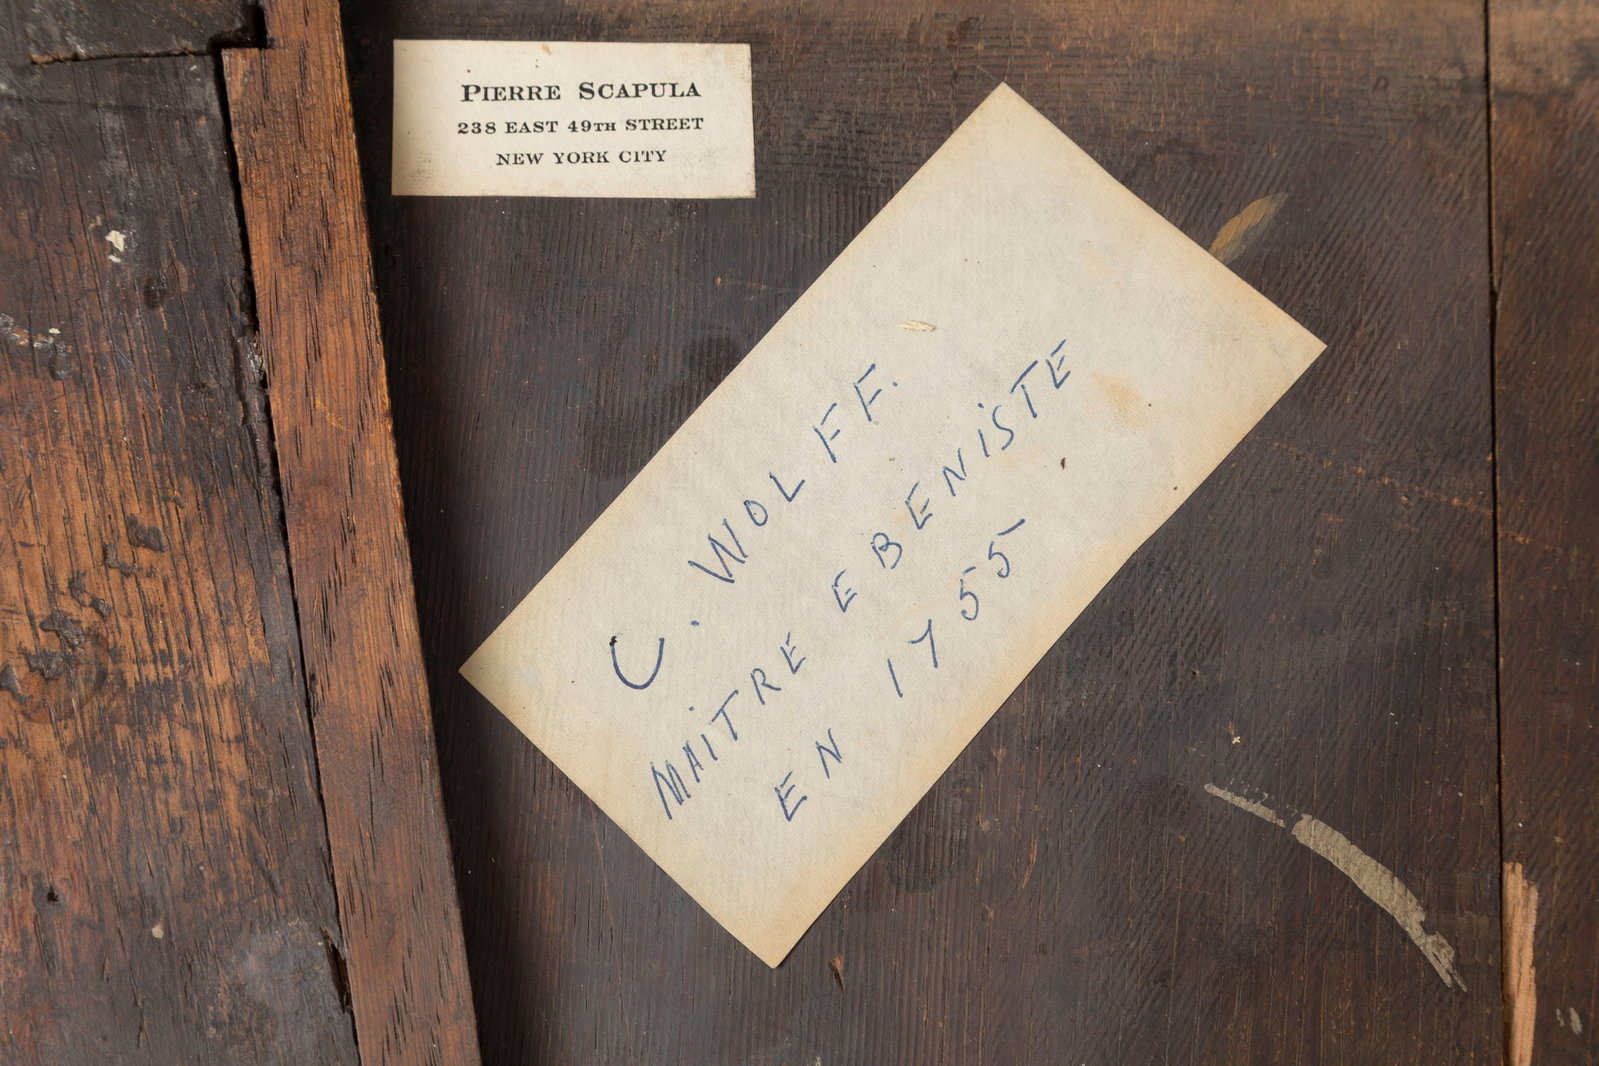 PIERRE SCAPULA
238 EAST 49TH STREET
NEW YORK CITY
C. WOLFF.
MAiTRE EBENiSTE
EN 1755